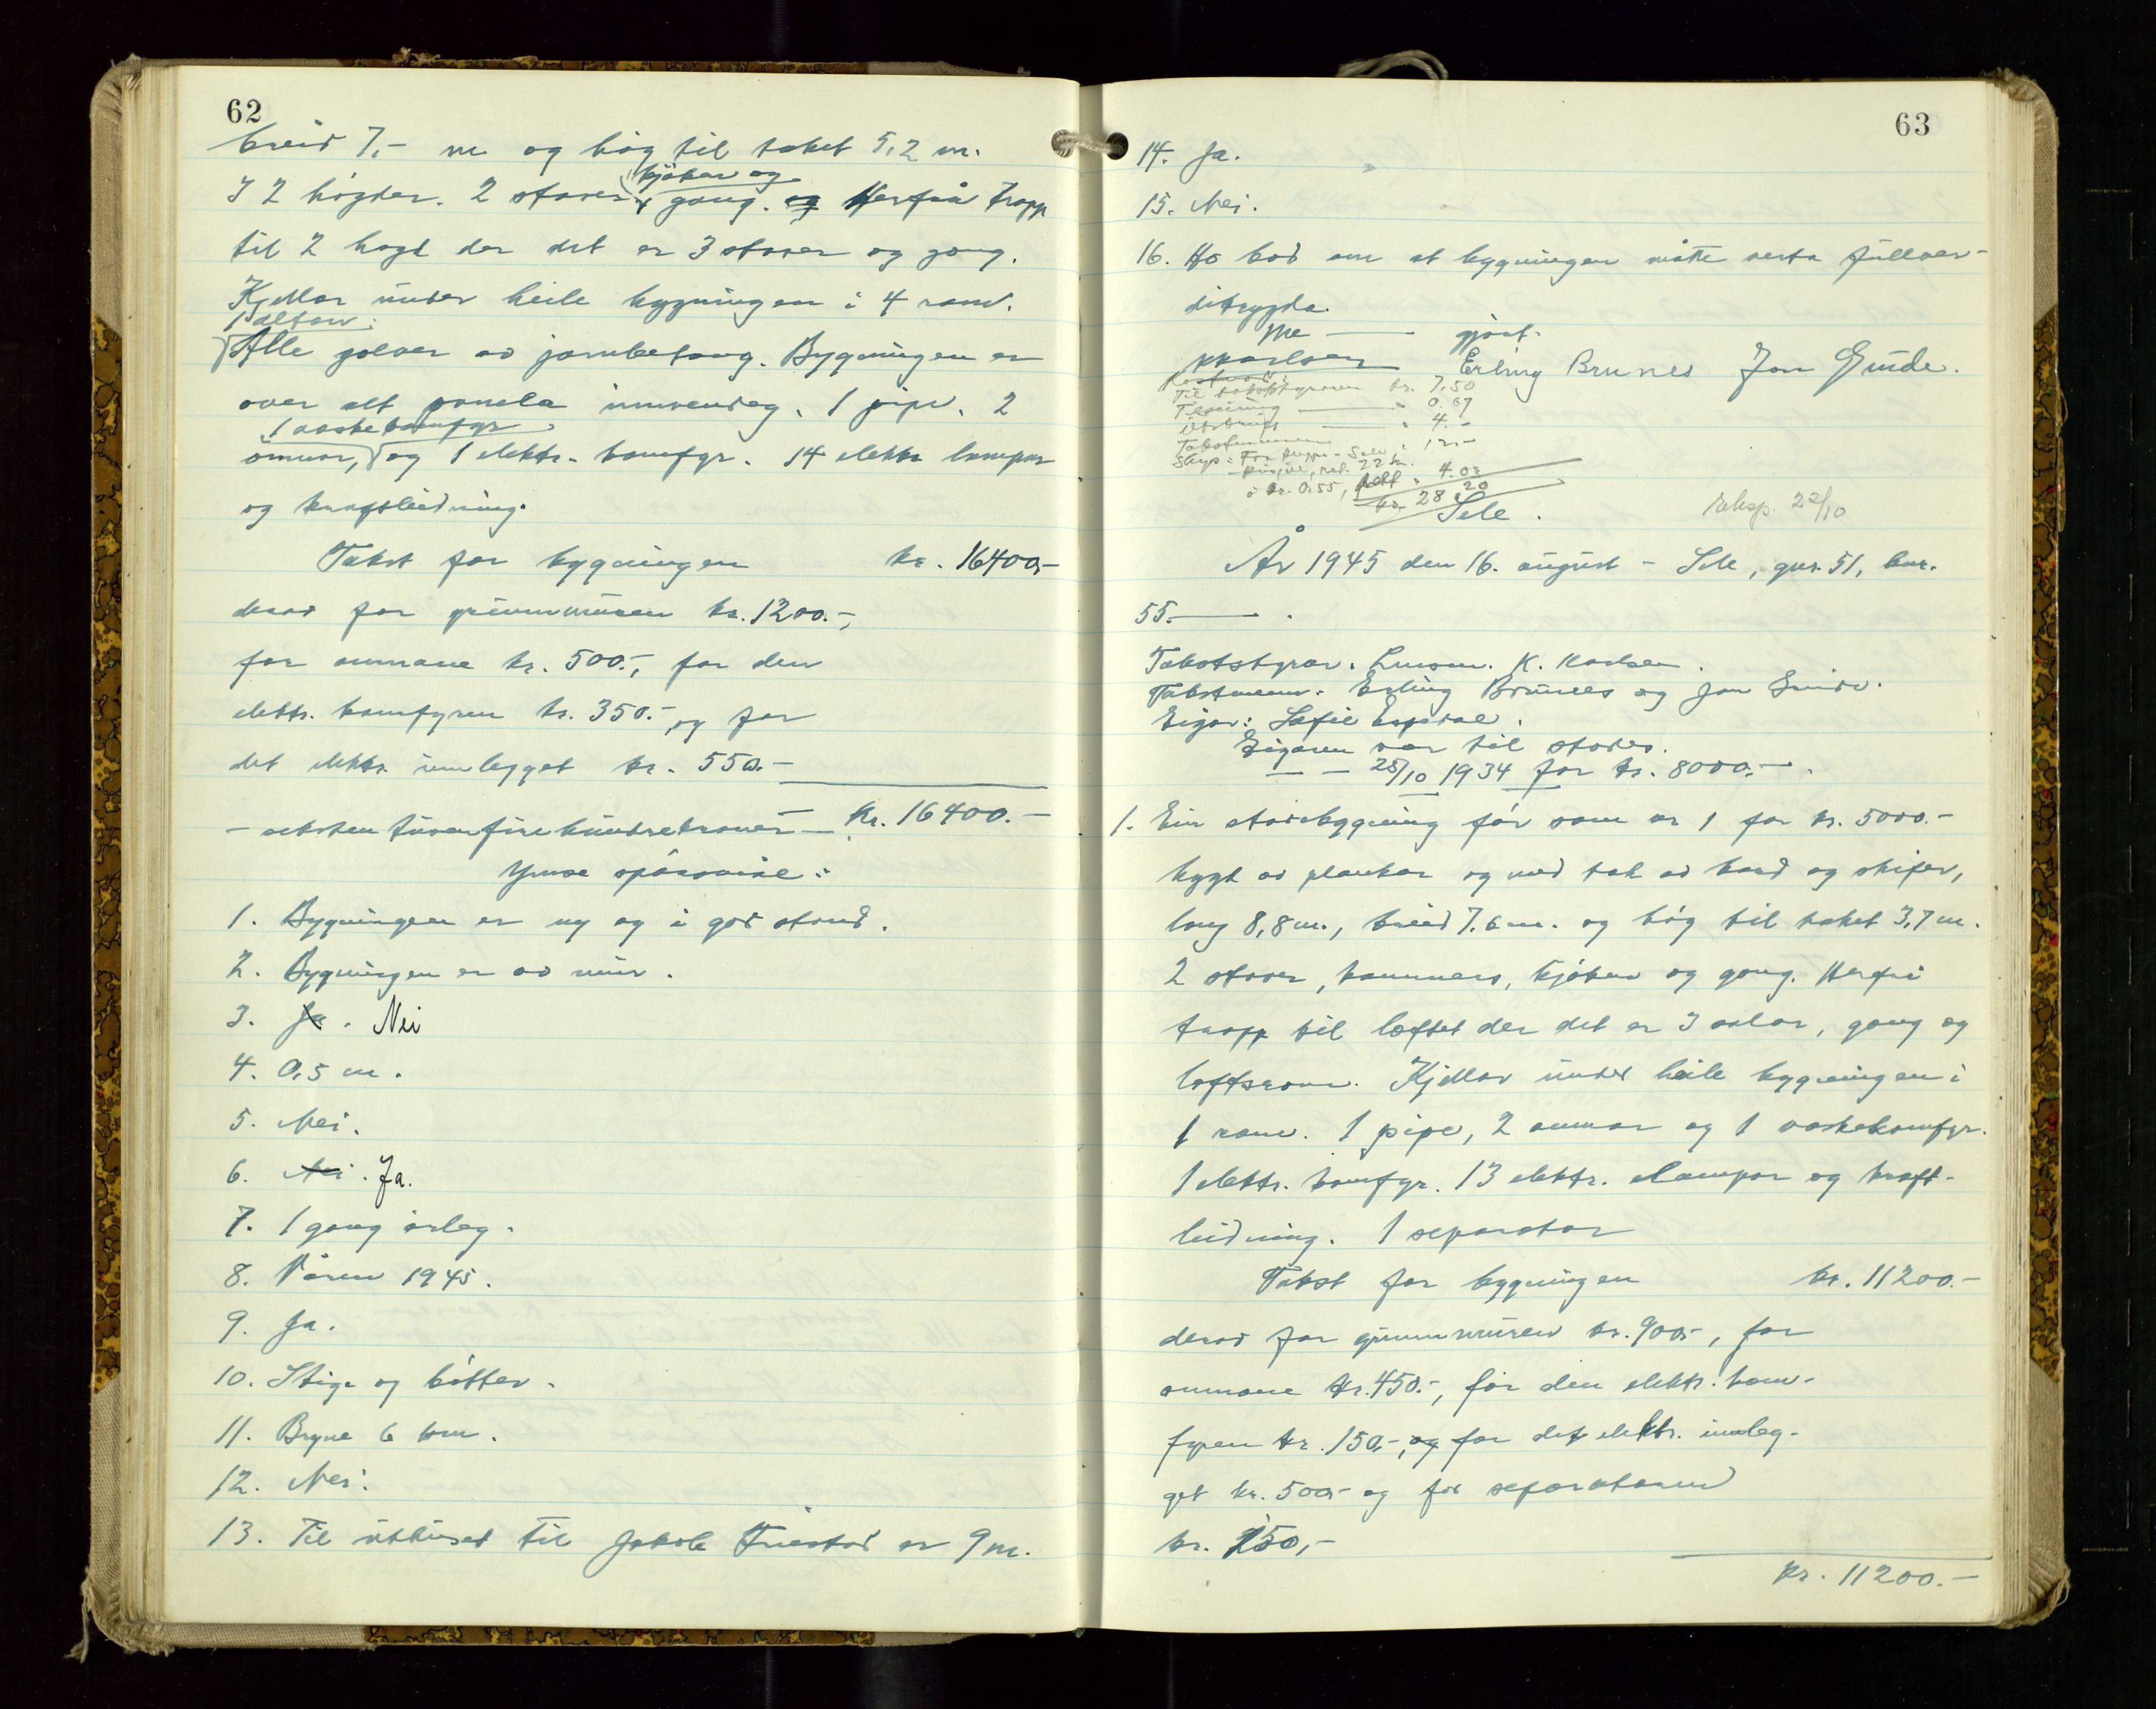 62
breid 7,- m og høg til taket 5,2 m.
I 2 høgder. 2 stover, kjøken og gang. og Herfrå trapp
til 2 høgd der det er 3 stover og gong.
Kjellar under heile bygningen i 4 rom.
1 altan.
Alle golver av jarnbetong. Bygningen er
over alt panela innvendeg. 1 pipe, 2
omnar, 1 vaskekomfyr og 1 elektr. komfyr. 14 elektr. lampor
og kraftleidning.
Takst for bygningen kr. 16400,-
derav for grunnmuren kr. 1200.-,
for omnane kr. 500.-, for den
elektr. komfyren kr. 350.- og for
det elektr. innlegget kr. 550.-
- seksten tusen fire hundre kroner - Kr. 16400.-
Ymse spørsmål:
1. Bygningen er ny og i god stand.
2. Bygningen er av mur.
3. Ja. Nei
4. 0,5 m.
5. Nei.
6. Nei. Ja.
7. 1 gong årleg.
8. Våren 1945.
9. Ja.
10. Stige og bøtter.
11. Bryne 6 km.
12. Nei.
13. Til uthuset til Jakob Friestad er 9 m.
63
14. Ja.
15. Nei.
16. Ho bad om at bygningen måtte verta fullver-
ditrygda.
Me — gjort.
KKarlsen Erling Brunes Jon Grude.
Kostnad:
Til takststyraren kr. 7,50
Tilsening — " 0.67
Utskrift — " 4.-
Takstmennene 12.-
Skyss: Fra - Sele
22 km.
à kr. 0.55, " 4.03
kr. 28.20
Sele.
Eksp. 22/10
År 1945 den 16. august - Sele, gnr. 51, bnr.
55. — .
Takststyrar: Lensm. K. Karlsen.
Takstmenn: Erling Brunes og Jon Grude.
Eigar: Sofie Espedal.
Eigaren var til stades.
— — 25/10 1934 for kr. 8000.- .
1. Ein stovebygning før som nr 1 for kr. 5000.-
bygt av plankar og med tak av bord og skifer,
long 8,8 m., breid 7,6 m. og høg til taket 3,7 m.
2 stover, kammers, kjøken og gong. Herfrå
trapp til loftet der det er 3 salar, gong og
loftsrom. Kjellar under heile bygningen i
1 rom. 1 pipe, 2 omnar og 1 vaskekomfyr.
1 elektr. komfyr. 13 elektr. lampor og kraft-
leidning. 1 separator
Takst for bygningen kr. 11200.-
derav for grunnmuren kr. 900,-, for
omnane kr. 450.-, for den elektr. kom-
fyren kr. 150,-, og for det elektr. innleg-
get kr. 500,- og for separatoren
kr. 150,-
Kr. 11200.-